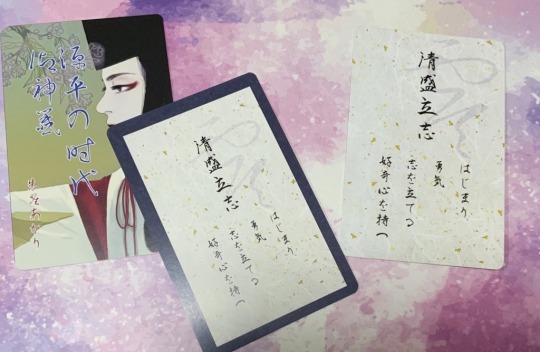 源平の時代
御神籤
あかり
清盛立志
はじまり
勇気
志を立てる
好奇心を持つ
清盛立志
はじまり
勇気
志を立てる
好奇心を持つ